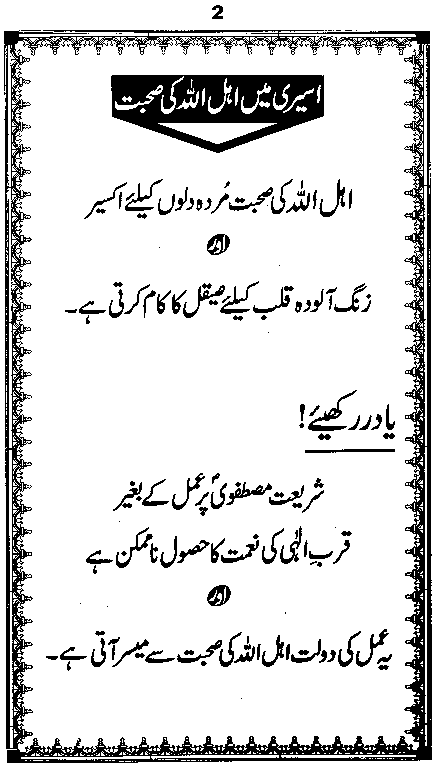 2
اسیری میں اہل اللہ کی صحبت
اہل اللہ کی صحبت مُردہ دلوں کیلئے اکسیر
اور
زنگ آلودہ قلب کیلئے صیقل کا کام کرتی ہے۔
یاد رکھیئے!
شریعت مصطفویؐ پر عمل کے بغیر
قربِ الٰہی کی نعمت کا حصول ناممکن ہے
اور
یہ عمل کی دولت اہل اللہ کی صحبت سے میسر آتی ہے۔